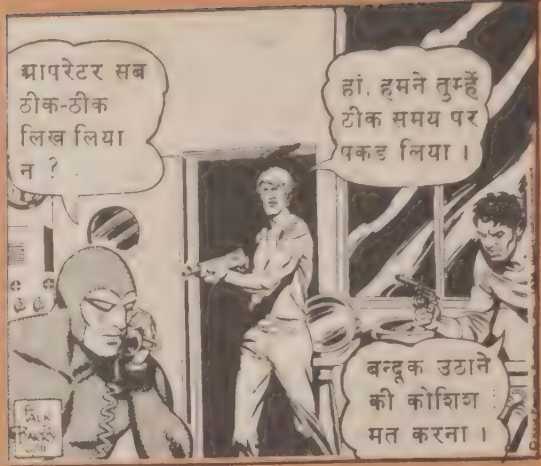 ग्रापरेटर सब
ठीक-ठीक
लिख लिया
न ?
हां, हमने तुम्हें
ठीक समय पर
पकड लिया ।
बन्दूक उठाने
की कोशिश
मत करना ।